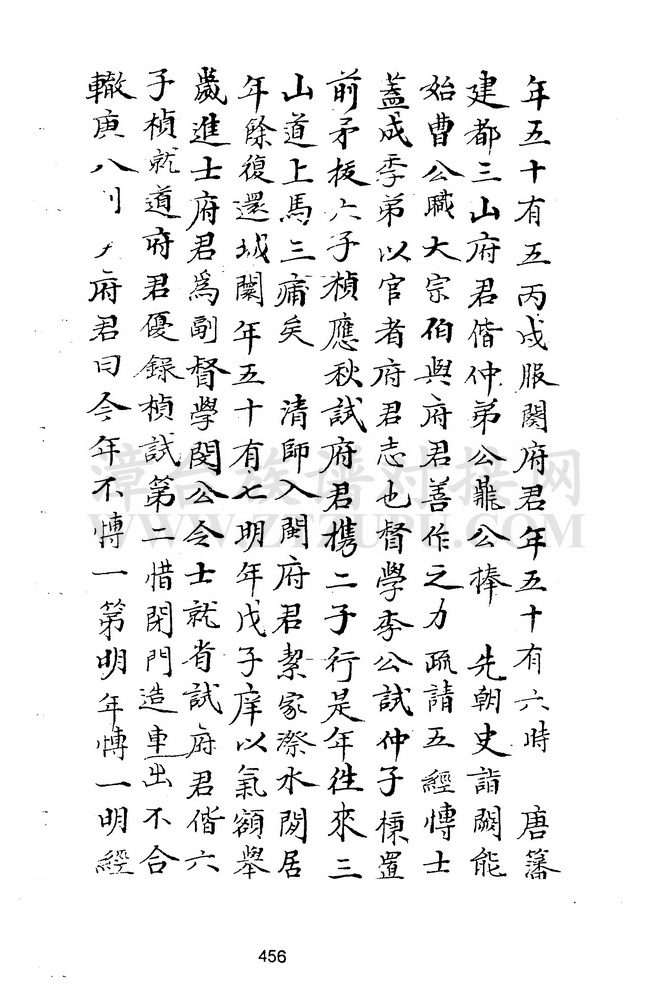 年五十有五丙戌服闋府君年五十有六時　唐藩
建都三山府君偕仲弟公鼐公捧　先朝史詣闕能
始曹公職大宗伯與府君善作之力疏請五經博士
蓋成季弟以官者府君志也督學李公試仲子棟置
前矛拔六子楨應秋試府君携二子行是年徃來三
山道上馬三痡矣　清師入閩府君絜家漈水閱居
年餘復還城闉年五十有七明年戊子庠以氣額舉
歲進士府君爲副督學閔公令士就省試府君偕六
子楨就道府君優錄楨試第二惜閉門造車出不合
轍庚八府君曰今年不博一第明年博一明經
漳台族谱对接网
WWW.ZTZUPU.COM
456